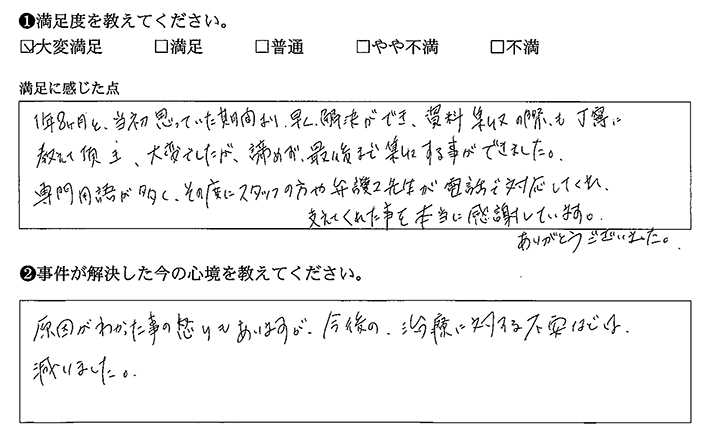 ❶満足度を教えてください。
☑大変満足 □満足 □普通 □やや不満 □不満
満足に感じた点
1年8ヶ月と、当初思っていた期間より早く解決ができ、資料集収の際も丁寧に
教えて頂き、大変でしたが、諦めず、最後まで集収する事ができました。
専門用語が多く、その度にスタッフの方や弁護士先生が電話で対応してくれ、
支えてくれた事を本当に感謝しています。
ありがとうございました。
❷事件が解決した今の心境を教えてください。
原因がわかった事の怒りもありますが、今後の、治療に対する不安は
減りました。